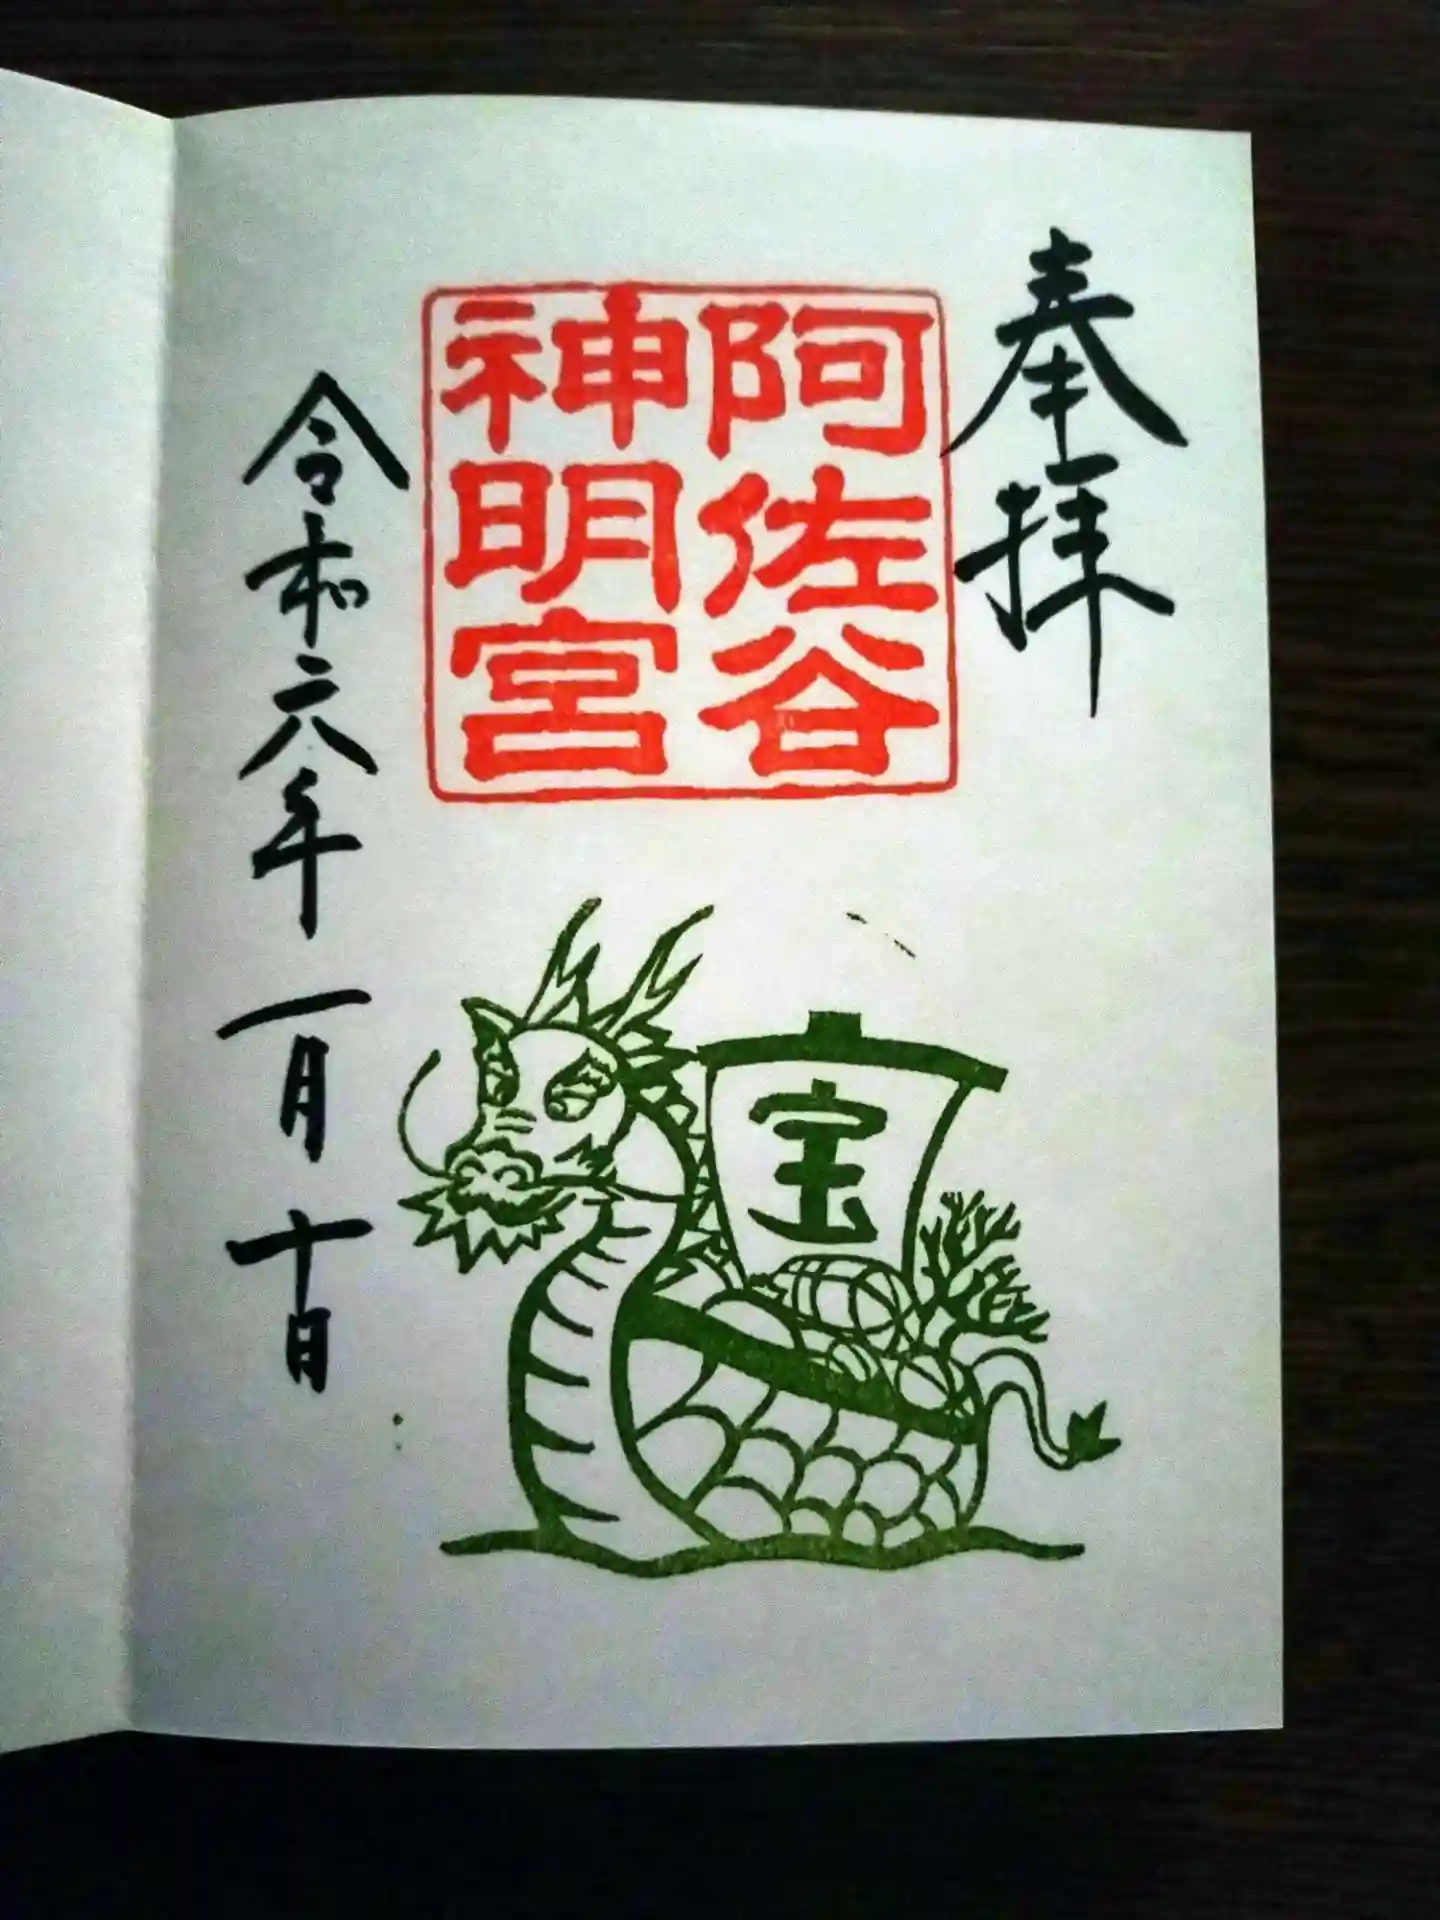 奉拝
阿佐谷
神明宮
令和六年一月十日
宝